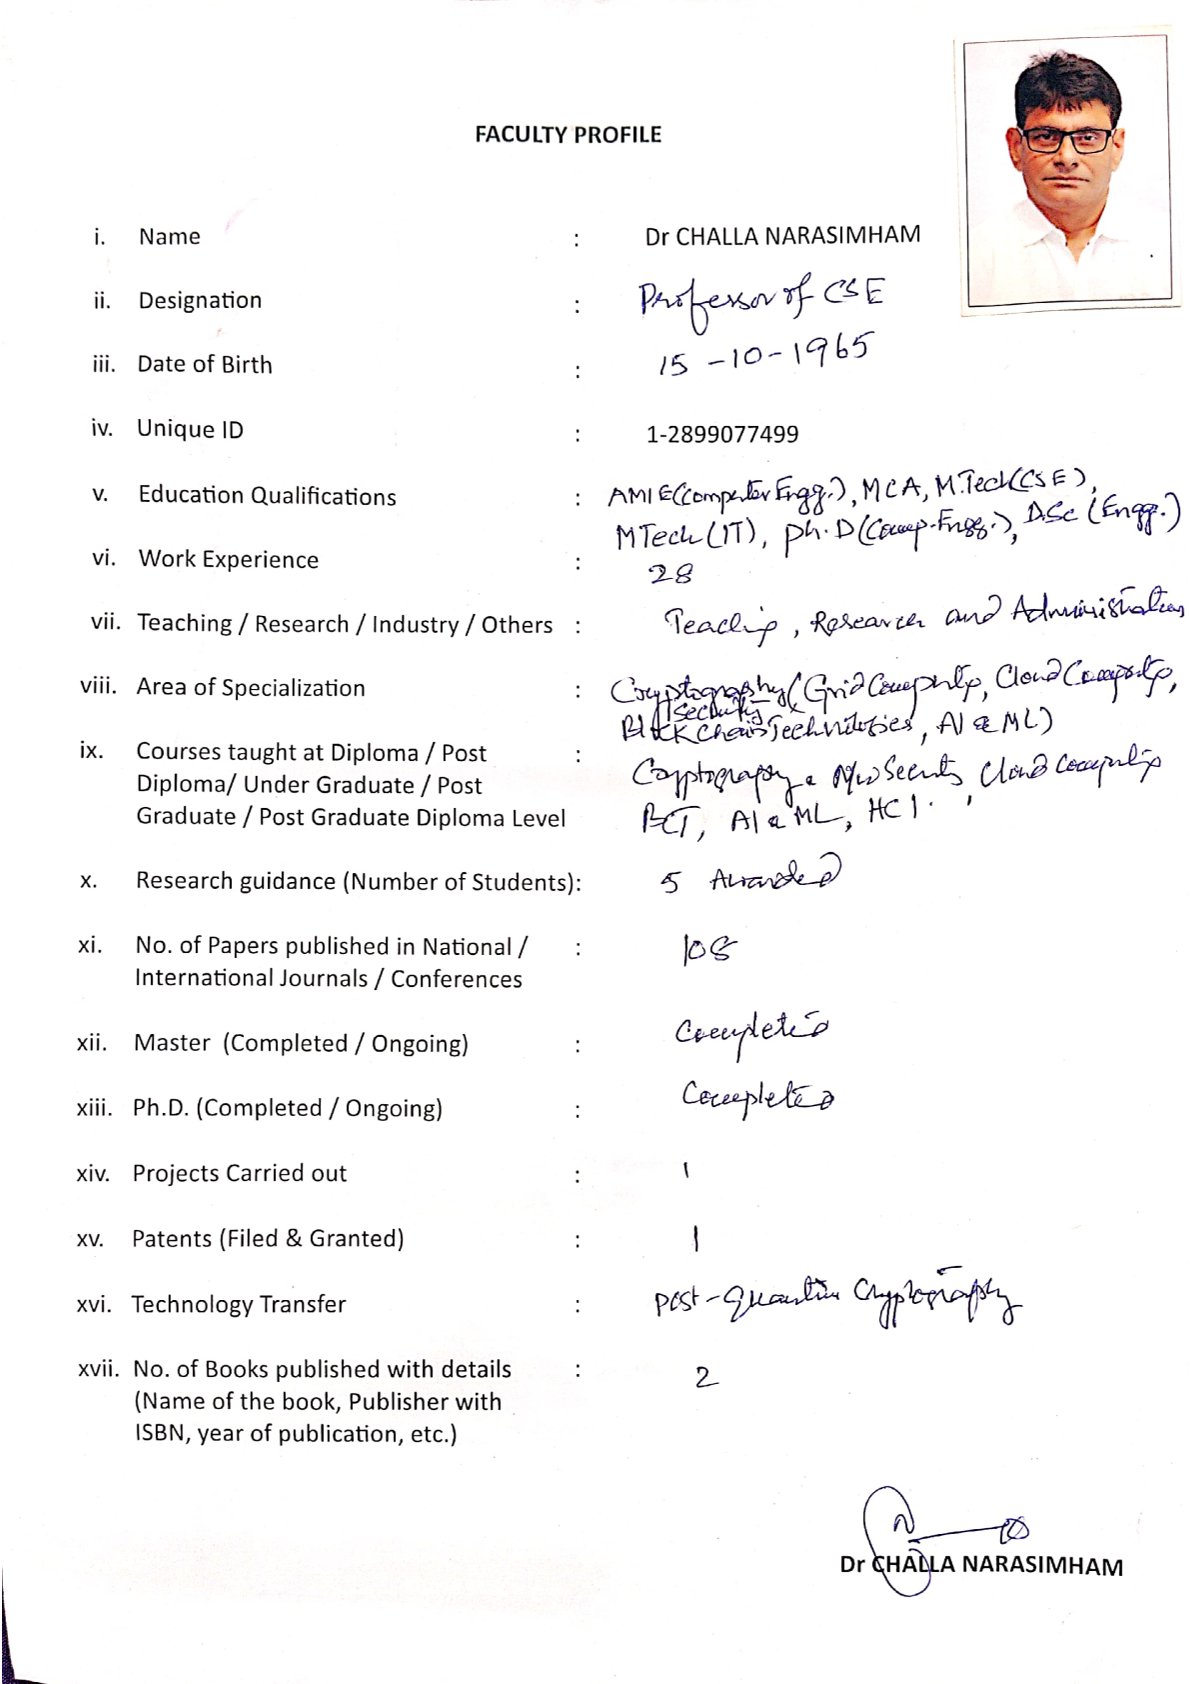 FACULTY PROFILE
i. Name : Dr CHALLA NARASIMHAM
ii. Designation : Professor of CSE
iii. Date of Birth : 15-10-1965
iv. Unique ID : 1-2899077499
v. Education Qualifications : AMIE(Computer Engg.), MCA, M.Tech(CSE),
MTech(IT), Ph.D(Comp.Engg.), DSc (Engg.)
vi. Work Experience : 28
vii. Teaching / Research / Industry / Others : Teaching, Research and Administration
viii. Area of Specialization : Cryptography (Grid Computing, Cloud Computing,
Security
Block Chain Technologies, AI & ML)
ix. Courses taught at Diploma / Post : Cryptography & Security, Cloud Computing
Diploma/ Under Graduate / Post
Graduate / Post Graduate Diploma Level BCT, AI & ML, HCI.
x. Research guidance (Number of Students): 5 Awarded
xi. No. of Papers published in National / : 108
International Journals / Conferences
xii. Master (Completed / Ongoing) : Completed
xiii. Ph.D. (Completed / Ongoing) : Completed
xiv. Projects Carried out : 1
xv. Patents (Filed & Granted) : 1
xvi. Technology Transfer : Post-Quantum Cryptography
xvii. No. of Books published with details : 2
(Name of the book, Publisher with
ISBN, year of publication, etc.)
Dr CHALLA NARASIMHAM